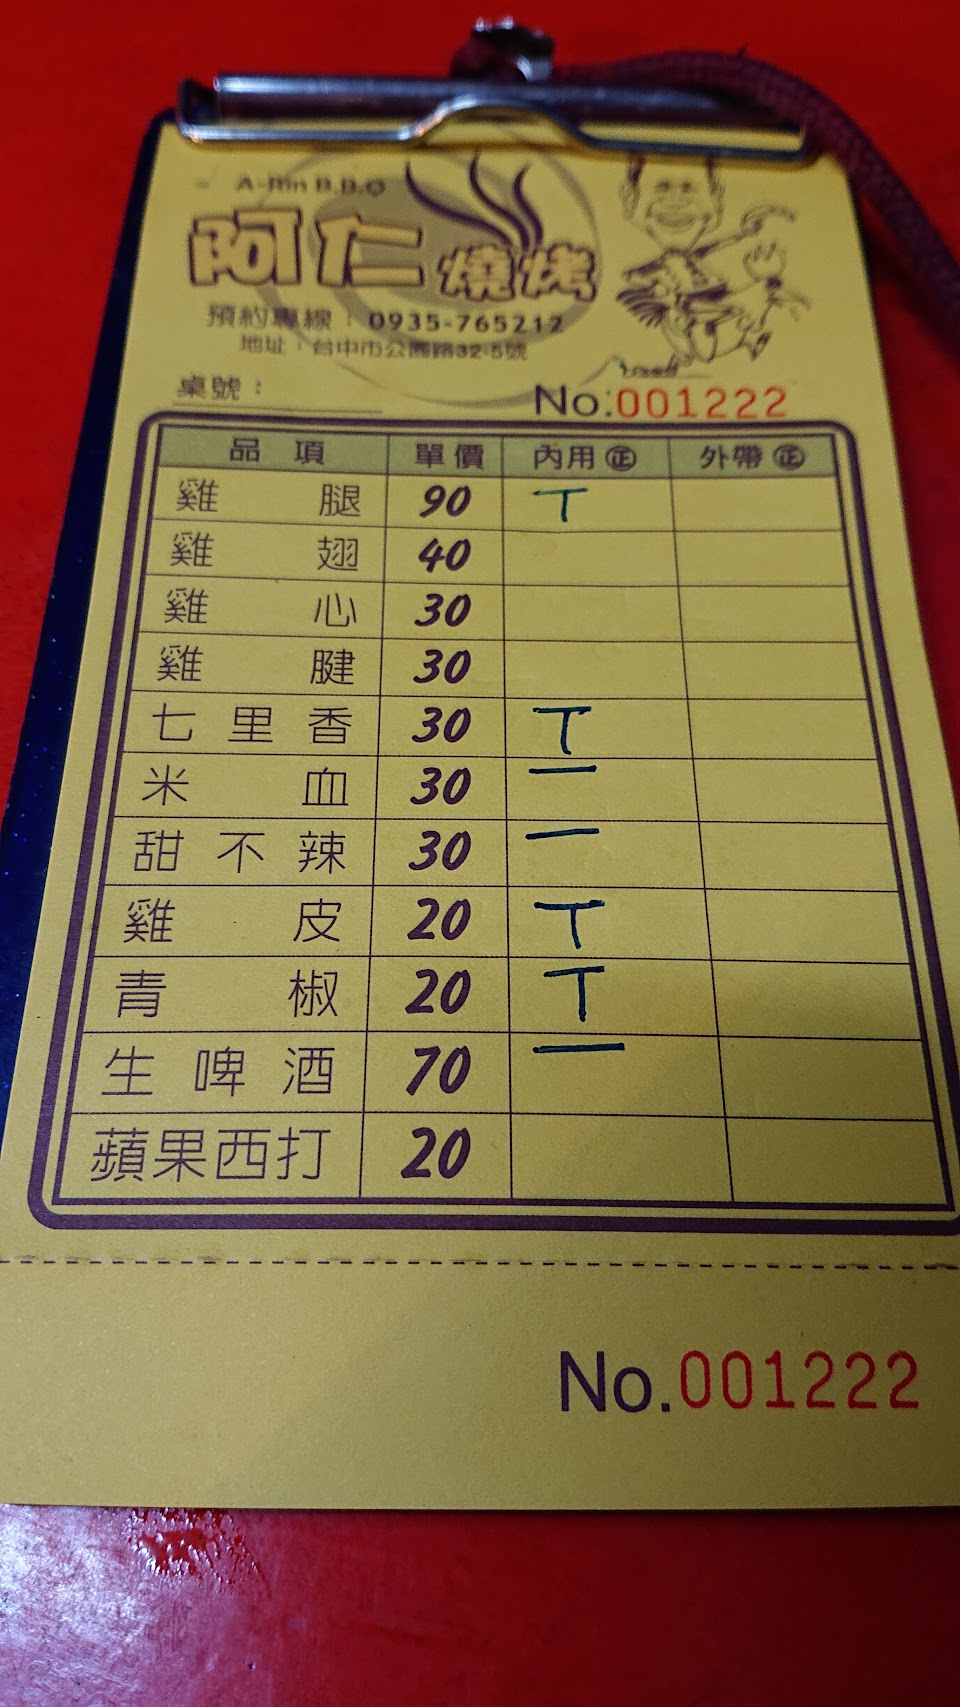 A-Rin B.B.Q
阿仁燒烤
預約專線：0935-765212
地址：台中市公園路32-5號
桌號：
No:001222
品項 單價 內用㊣ 外帶㊣
雞腿 90 T
雞翅 40
雞心 30
雞腱 30
七里香 30 T
米血 30 一
甜不辣 30 一
雞皮 20 T
青椒 20 T
生啤酒 70 一
蘋果西打 20
No.001222